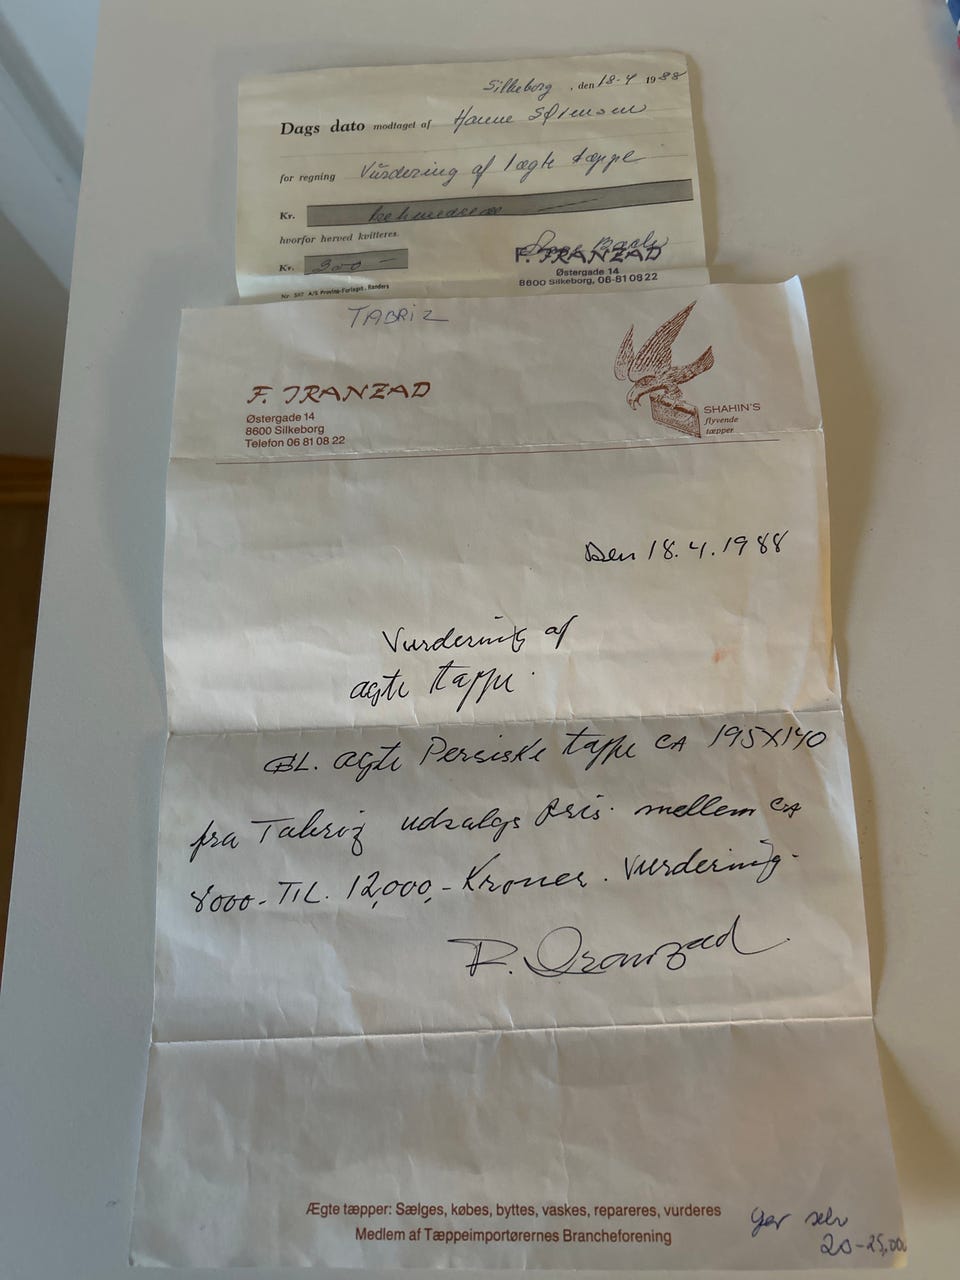 Silkeborg, den 18-4 1988
Dags dato modtaget af Hanne Sørensen
for regning Vurdering af 1 ægte tæppe
Kr.
hvorfor herved kvitteres.
Kr. 300 —
F. IRANZAD
Østergade 14
8600 Silkeborg, 06-81 08 22
Nr. 587 A/S Provins-Forlaget, Randers
TABRIZ
F. IRANZAD
Østergade 14
8600 Silkeborg
Telefon 06 81 08 22
SHAHIN'S
flyvende
tæpper
Den 18.4.1988
Vurdering af
ægte tæppe.
GL. ægte Persiske tæppe CA 195X140
fra Tabriz udsalgs Pris. mellem CA
8000- TIL. 12,000,- Kroner. Vurdering.
F. Iranzad
Ægte tæpper: Sælges, købes, byttes, vaskes, repareres, vurderes
Medlem af Tæppeimportørernes Brancheforening
selv
20-25,000